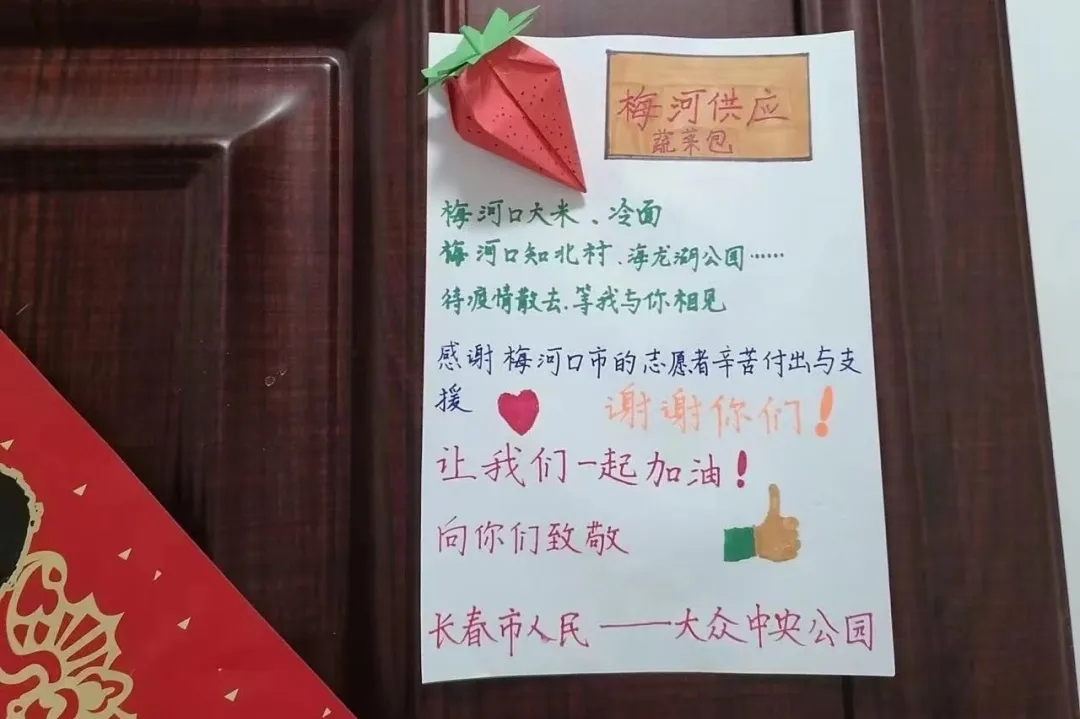 梅河供应
蔬菜包
梅河口大米、冷面
梅河口知北村、海龙湖公园……
待疫情散去、等我与你相见
感谢梅河口市的志愿者辛苦付出与支
援
谢谢你们！
让我们一起加油！
向你们致敬
长春市人民——大众中央公园